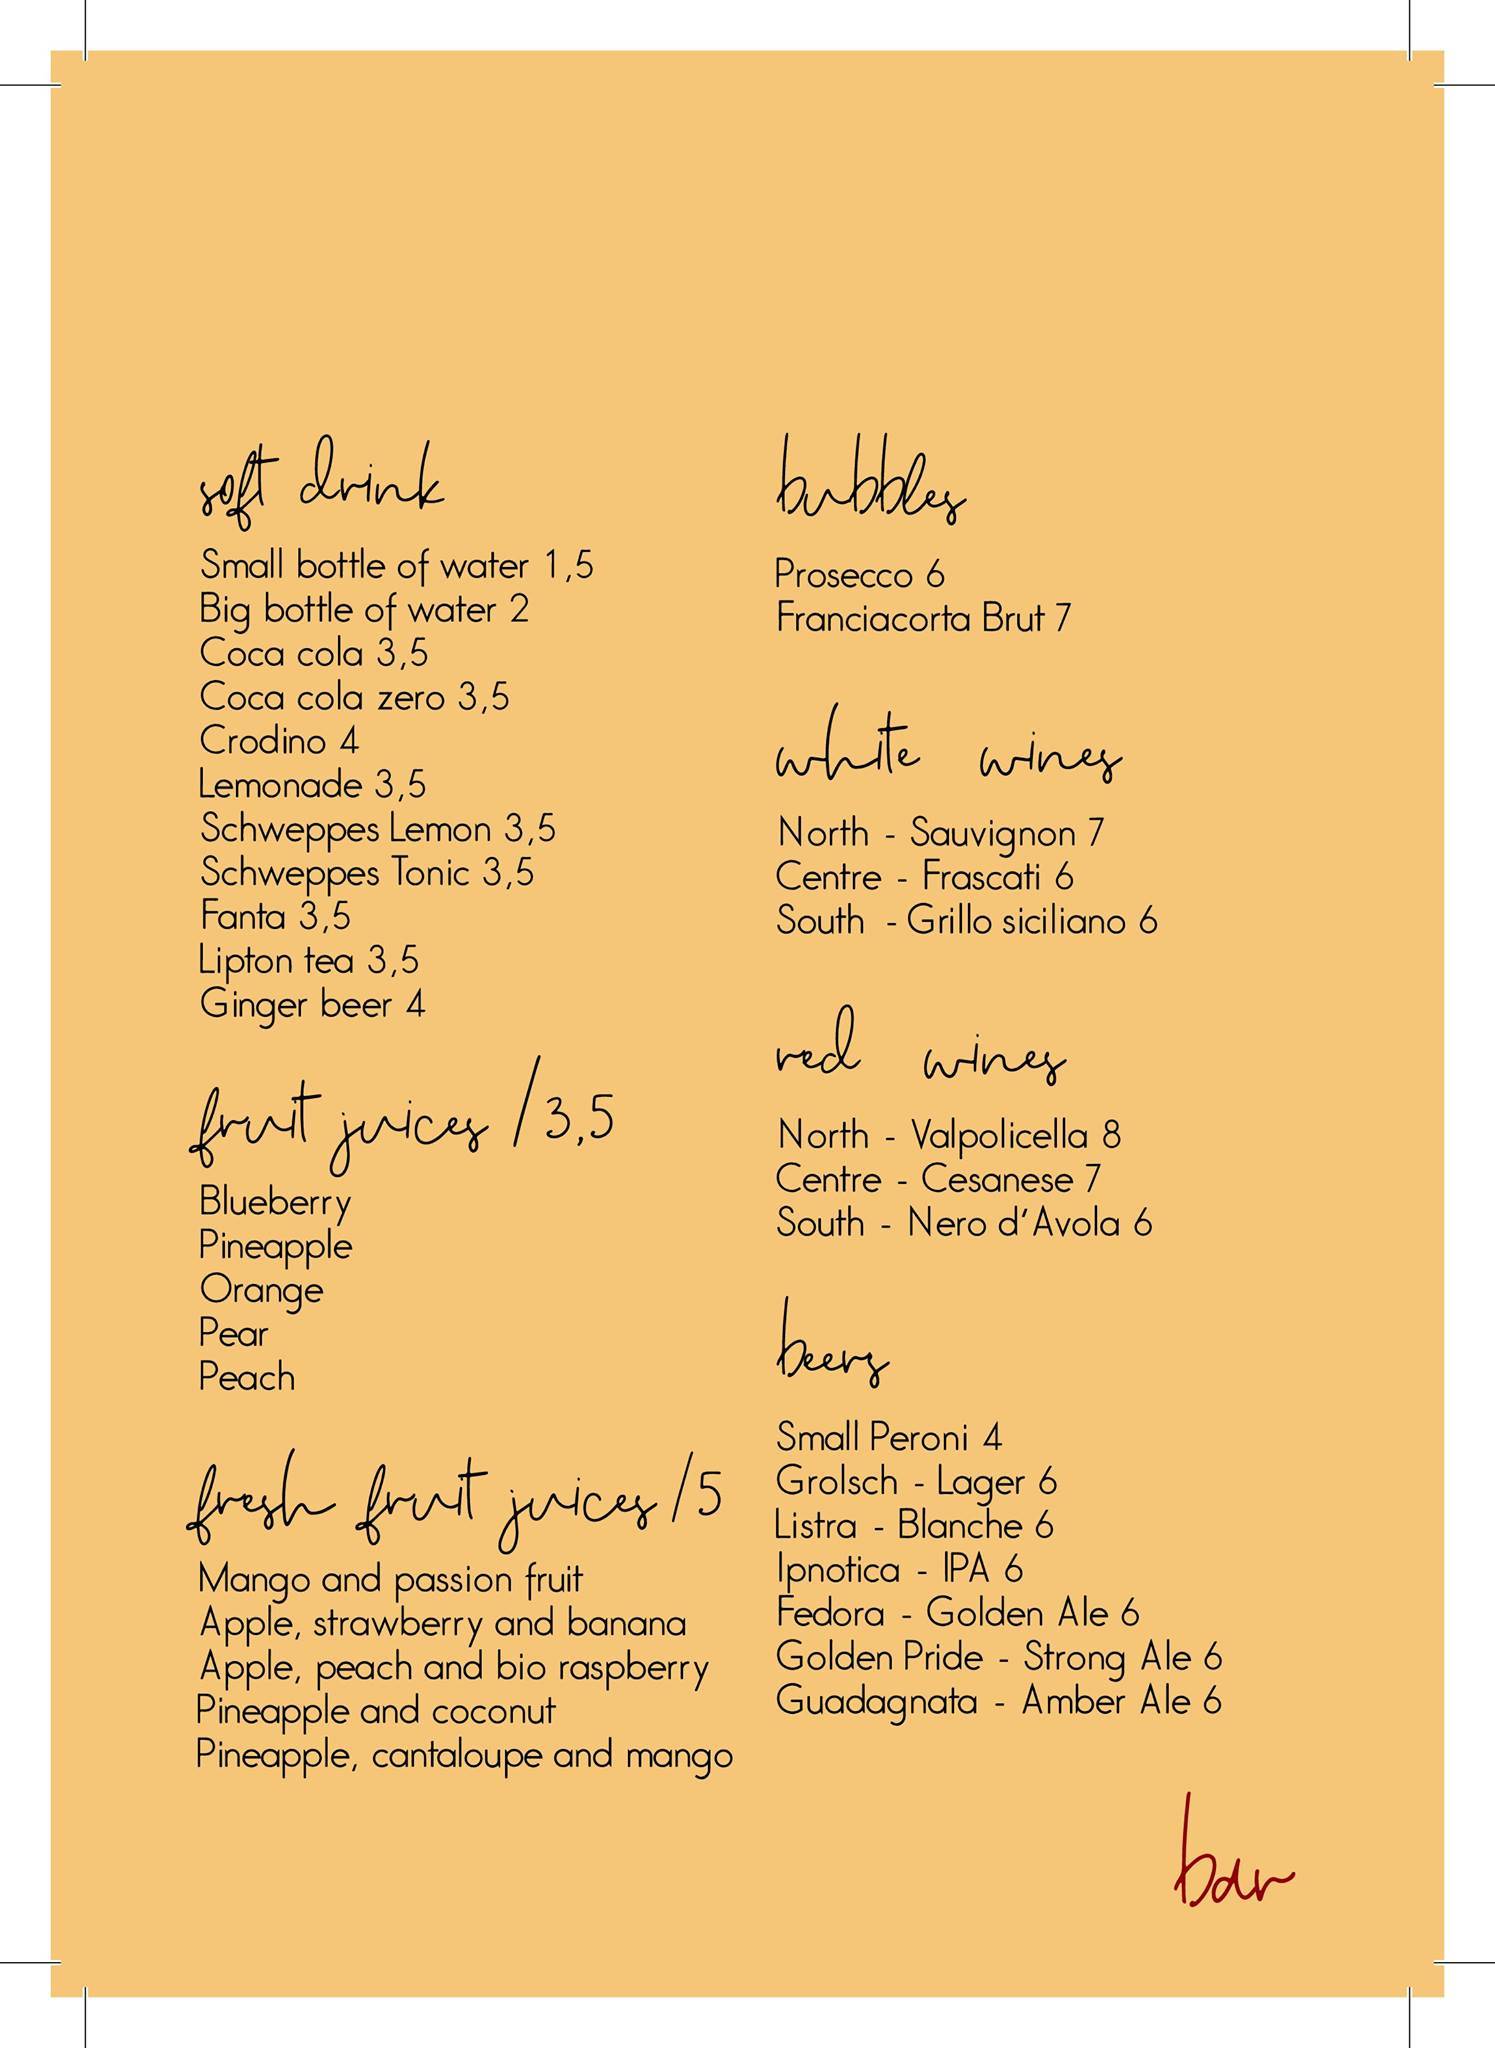 soft drink
Small bottle of water 1,5
Big bottle of water 2
Coca cola 3,5
Coca cola zero 3,5
Crodino 4
Lemonade 3,5
Schweppes Lemon 3,5
Schweppes Tonic 3,5
Fanta 3,5
Lipton tea 3,5
Ginger beer 4
fruit juices /3,5
Blueberry
Pineapple
Orange
Pear
Peach
fresh fruit juices /5
Mango and passion fruit
Apple, strawberry and banana
Apple, peach and bio raspberry
Pineapple and coconut
Pineapple, cantaloupe and mango
bubbles
Prosecco 6
Franciacorta Brut 7
white wines
North - Sauvignon 7
Centre - Frascati 6
South - Grillo siciliano 6
red wines
North - Valpolicella 8
Centre - Cesanese 7
South - Nero d'Avola 6
beers
Small Peroni 4
Grolsch - Lager 6
Listra - Blanche 6
Ipnotica - IPA 6
Fedora - Golden Ale 6
Golden Pride - Strong Ale 6
Guadagnata - Amber Ale 6
bar